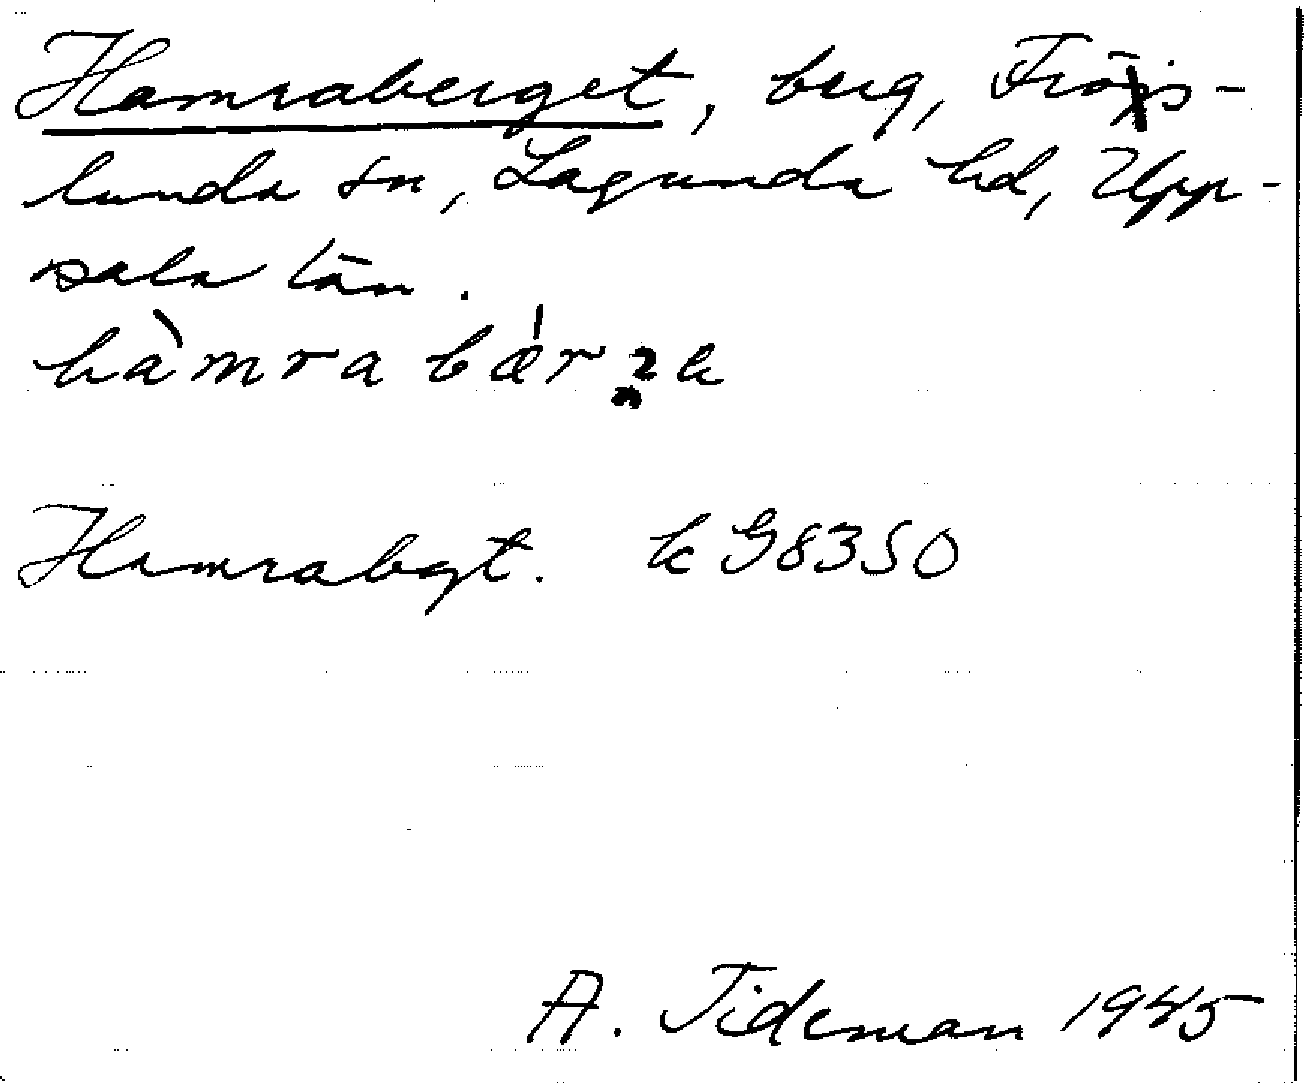 Hamraberget, berg, Frös-
lunda sn, Lagunda hd, Upp-
sala län.
hàmra bǽr e
Hamrabgt. k G8350
A. Tideman 1945